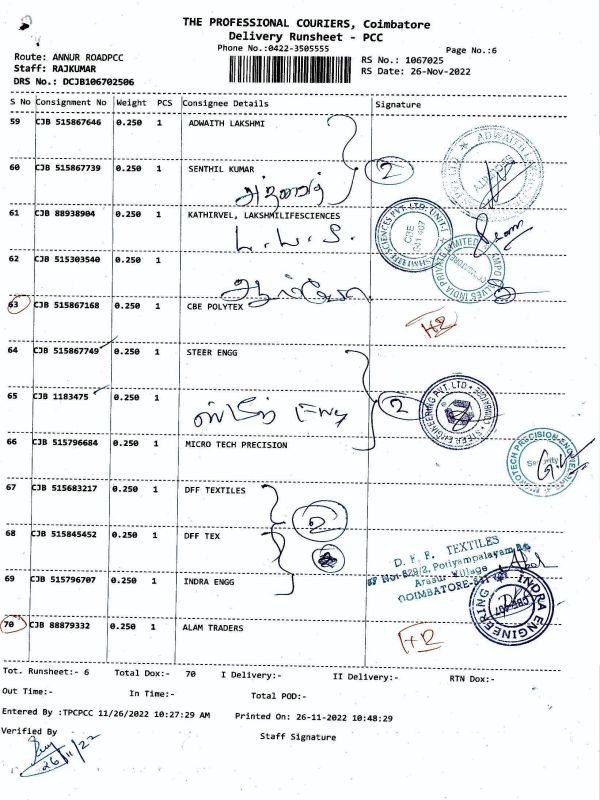 THE PROFESSIONAL COURIERS, Coimbatore
Delivery Runsheet - PCC
Phone No.:0422-3505555
Page No.:6
Route: ANNUR ROADPCC
Staff: RAJKUMAR
DRS No.: DCJB106702506
RS No.: 1067025
RS Date: 26-Nov-2022
S No Consignment No Weight PCS Consignee Details Signature
59 CJB 515867646 0.250 1 ADWAITH LAKSHMI
60 CJB 515867739 0.250 1 SENTHIL KUMAR
2
61 CJB 88938904 0.250 1 KATHIRVEL, LAKSHMILIFESCIENCES
L.L.S.
62 CJB 515303540 0.250 1
63 CJB 515867168 0.250 1 CBE POLYTEX
64 CJB 515867749 0.250 1 STEER ENGG
65 CJB 1183475 0.250 1
2
66 CJB 515796684 0.250 1 MICRO TECH PRECISION
67 CJB 515683217 0.250 1 DFF TEXTILES
2
68 CJB 515845452 0.250 1 DFF TEX
D. F. F. TEXTILES
Potiyampalayam
Arasur Village
COIMBATORE-641
69 CJB 515796707 0.250 1 INDRA ENGG
INDRA ENGINEERING
70 CJB 88879332 0.250 1 ALAM TRADERS
Tot. Runsheet:- 6 Total Dox:- 70 I Delivery:- II Delivery:- RTN Dox:-
Out Time:- In Time:- Total POD:-
Entered By :TPCPCC 11/26/2022 10:27:29 AM Printed On: 26-11-2022 10:48:29
Verified By
Staff Signature
26/11/22